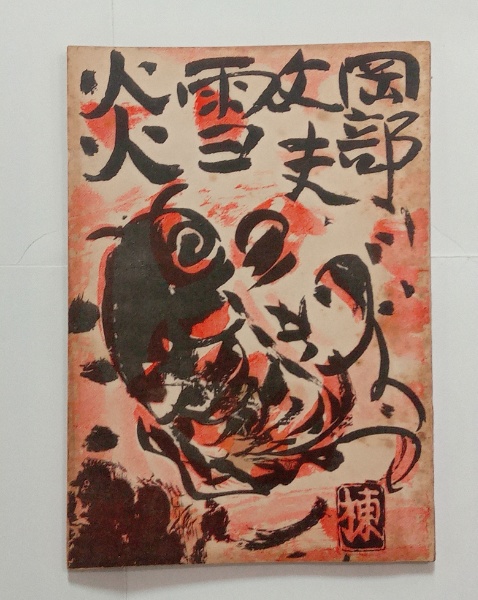 岡部
文夫
雪炎
棟